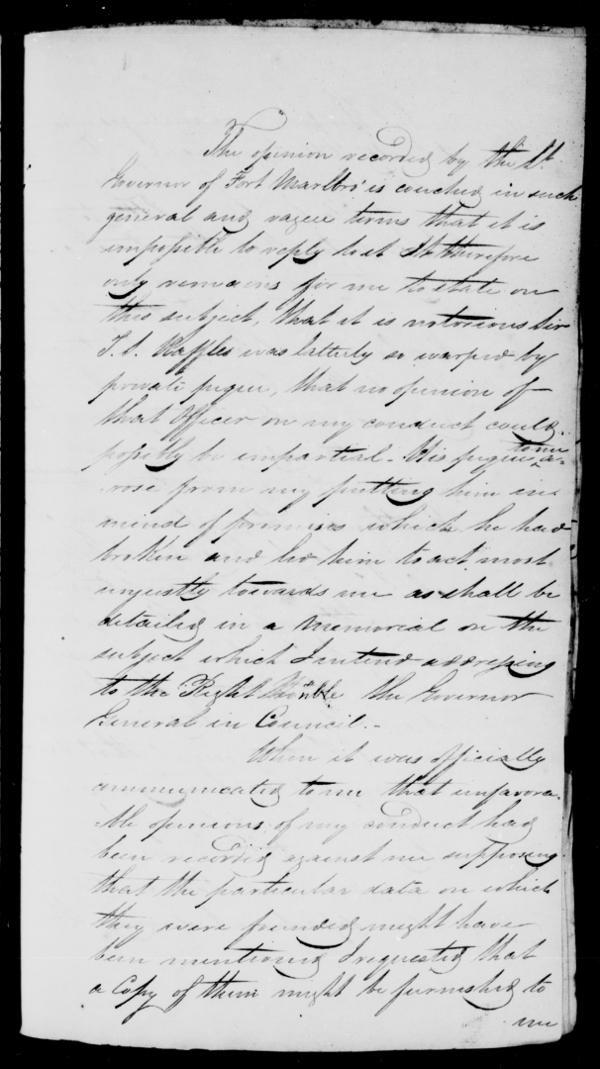 The opinion recorded by the Lt.
Governor of Fort Marlbro' is couched in such
general and vague terms that it is
impossible to reply to it. It therefore
only remains for me to state on
this subject, that it is notorious Sir
T. S. Raffles was latterly so warped by
private pique, that no opinion of
that Officer on my conduct could
possibly be impartial. His pique to me a-
rose from my putting him in
mind of promises which he had
broken and led him to act most
unjustly towards me as shall be
detailed in a Memorial on the
subject which I intend addressing
to the Right Honble the Governor
General in Council.-
When it was officially
communicated to me that unfavora-
ble opinions of my conduct had
been recorded against me supposing
that the particular data on which
they were founded might have
been mentioned I requested that
a Copy of them might be furnished to
me